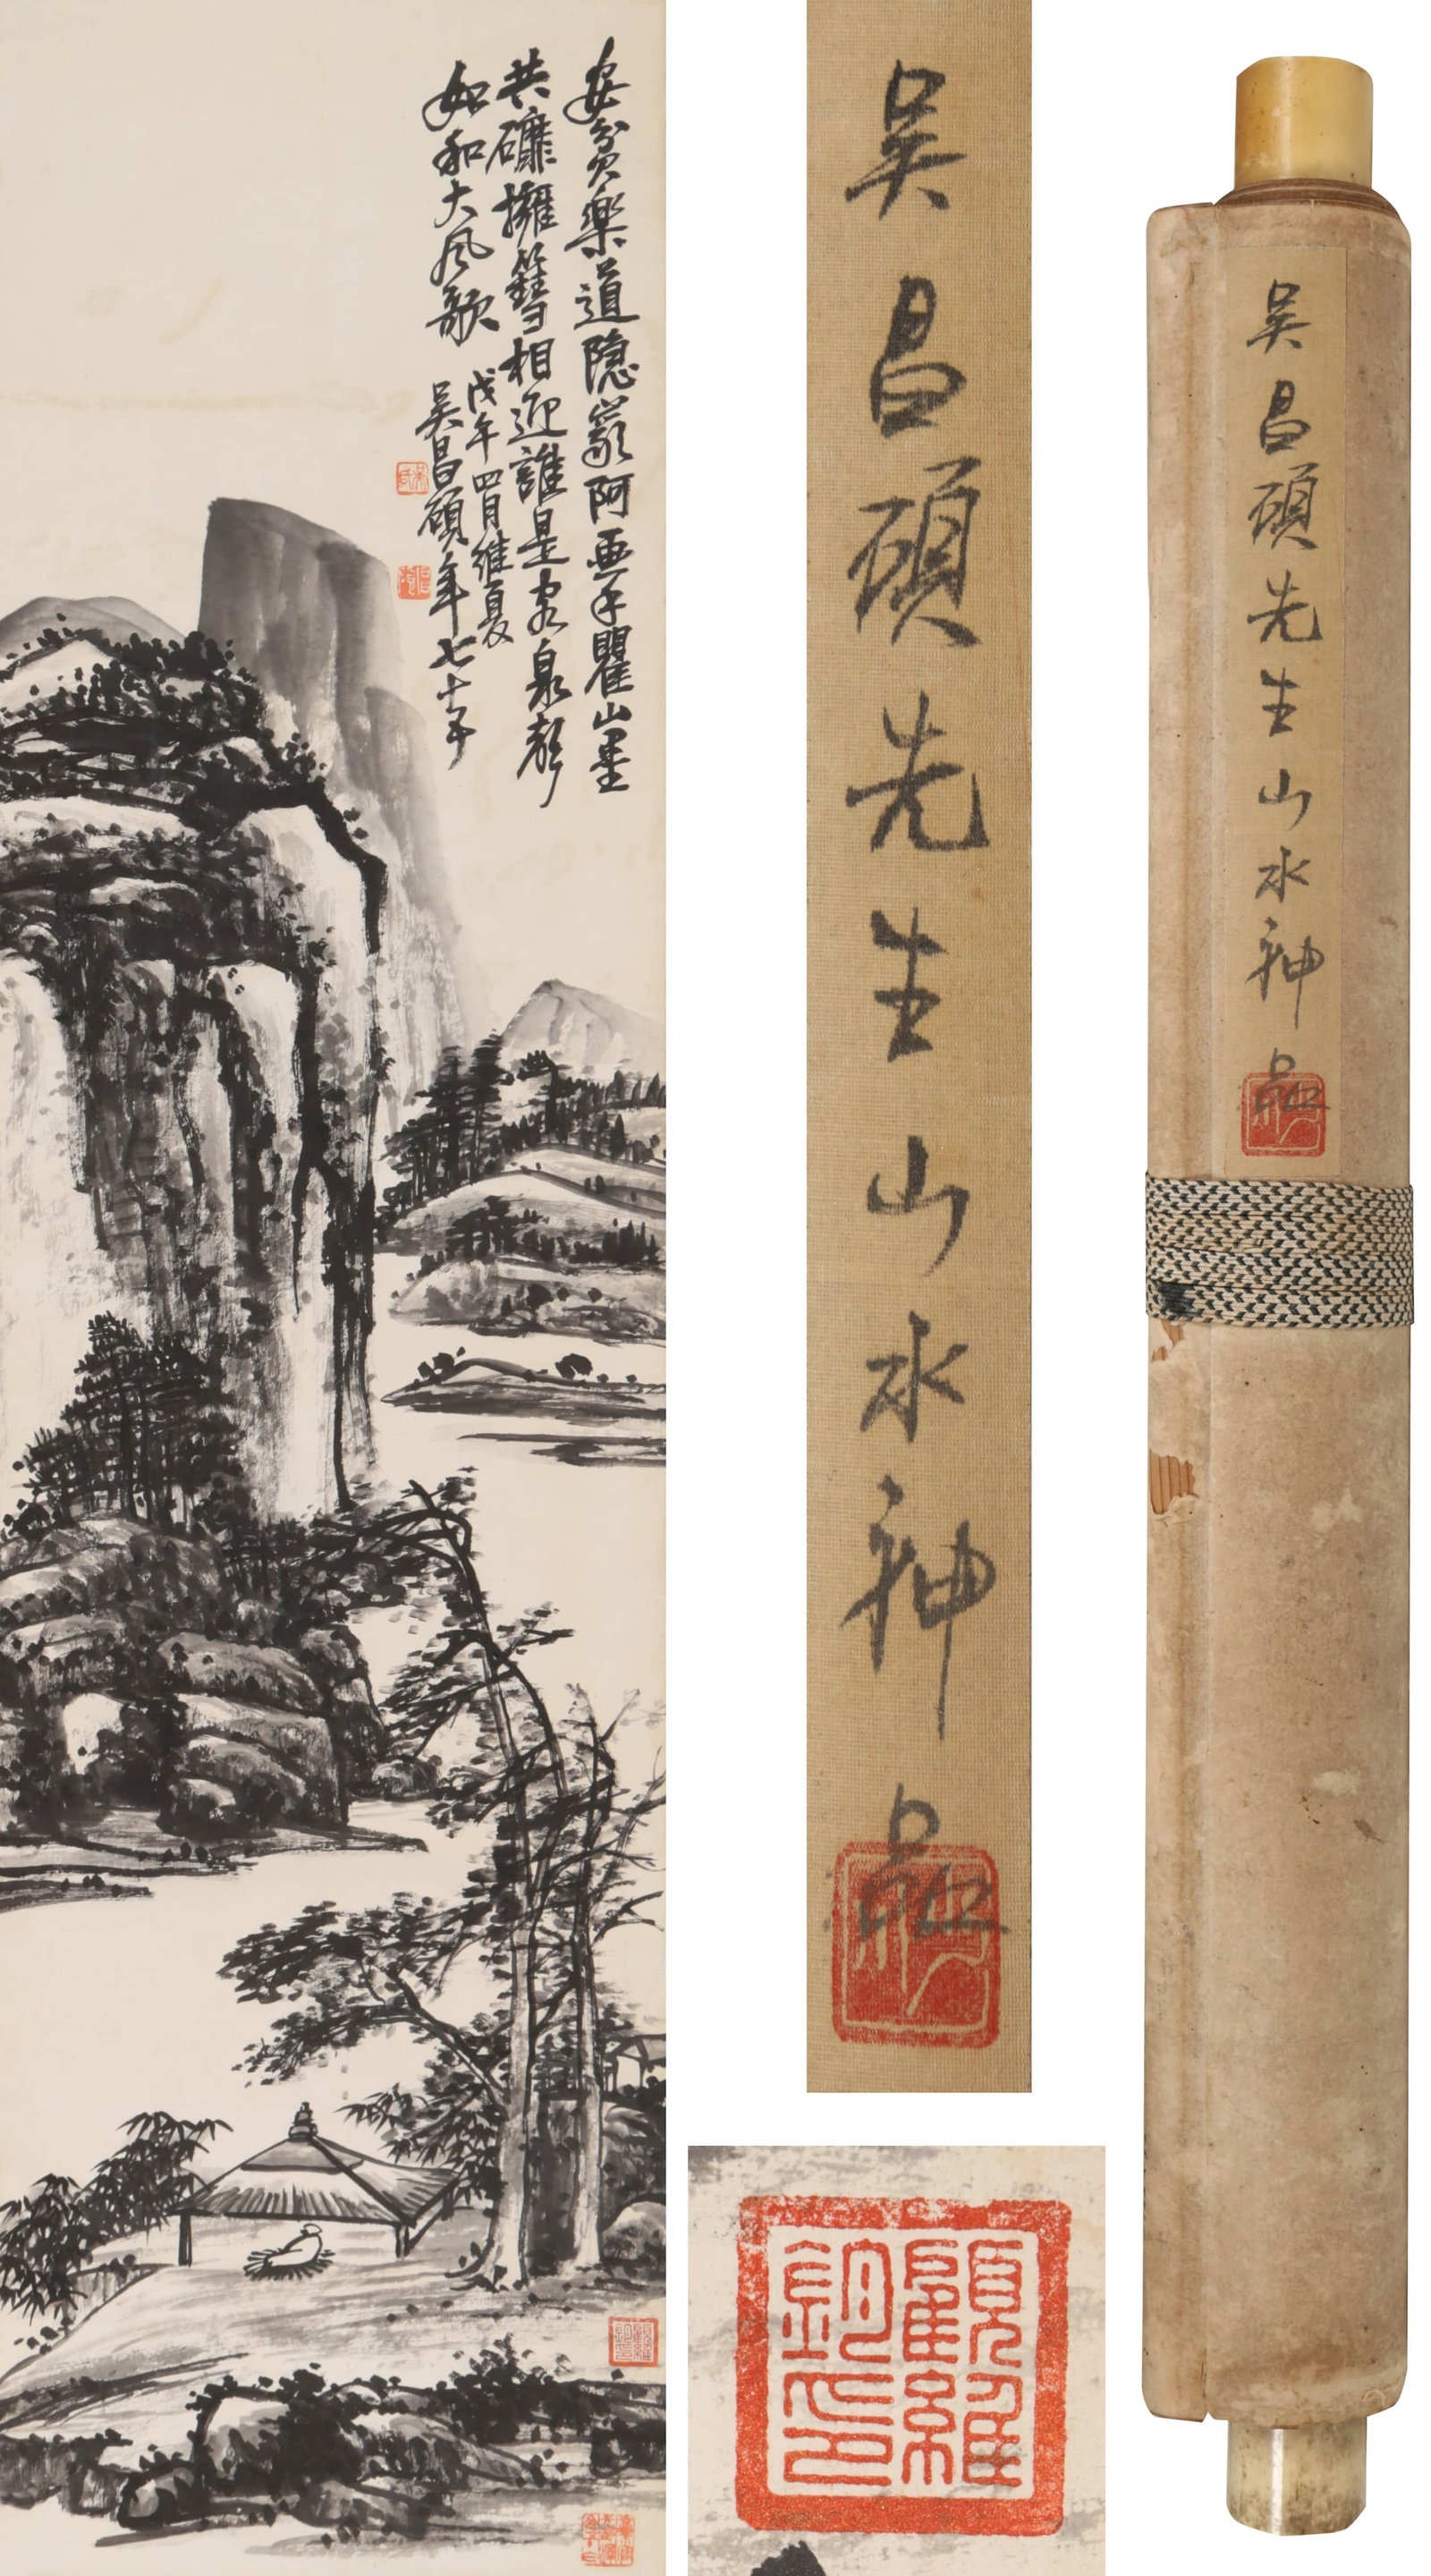 安貧樂道隱巖阿垂手瞿山墨
共礳擁篲相迎誰是客泉聲
如和大風歌
戊午四月維夏
吳昌碩年七十五
吳昌碩先生山水神品
顧維鈞印
吳昌碩先生山水神品